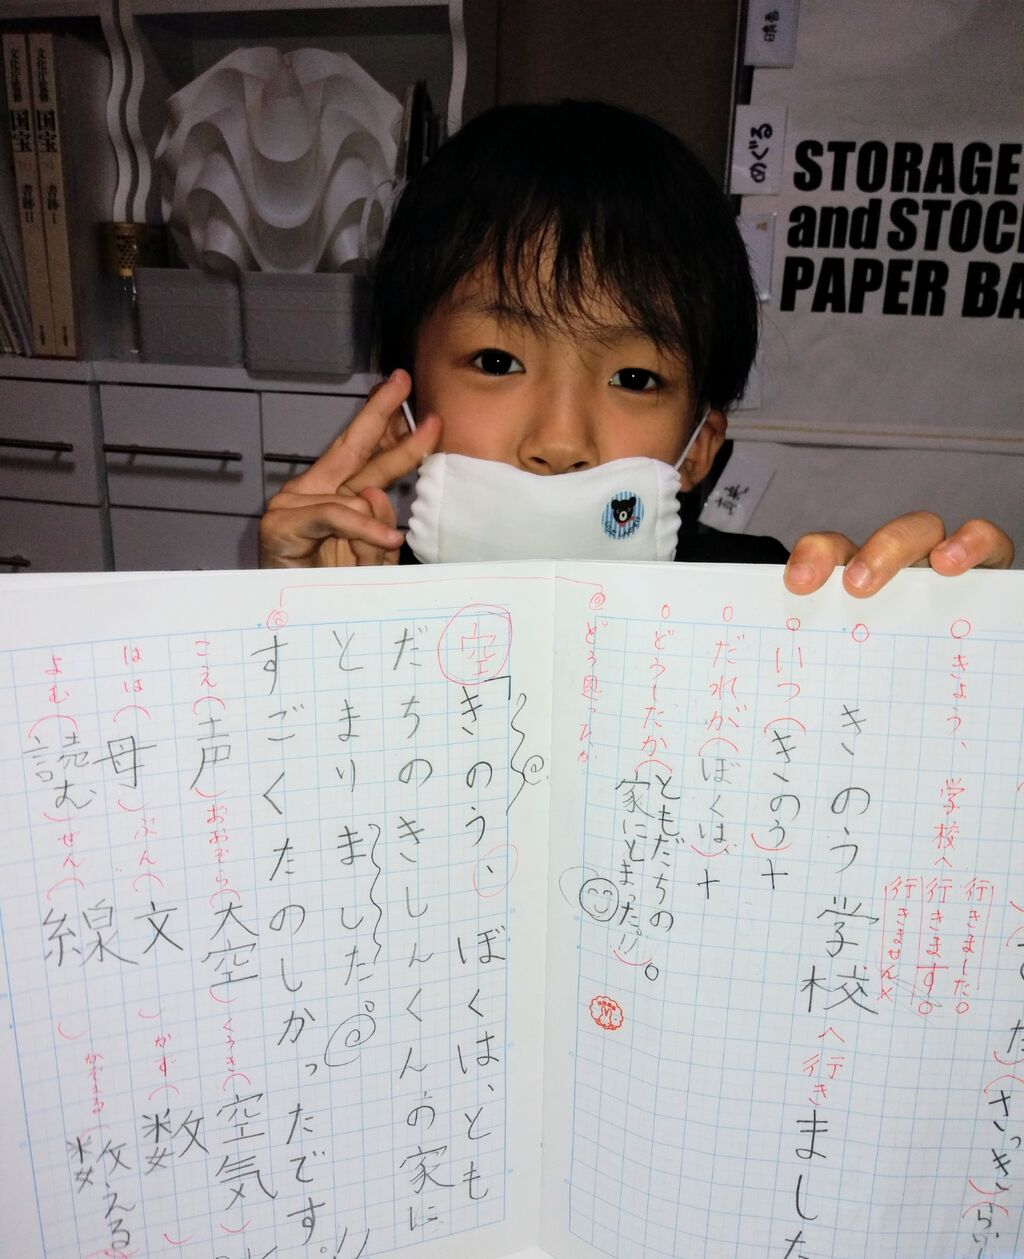 文化庁監修
国宝
書跡Ⅱ
文化庁監修
国宝
書跡Ⅰ
めぐる
STORAGE
and STOC
PAPER BA
きょう、学校へ
行きました
行きます
行きません
きのう学校へ行きました
いつ(きのう)+
だれが(ぼくは、)+
どうしたか(ともだちの
家にとまった!!)。
どう思ったか
空
「きのう、ぼくは、とも
だちのきしんくんの家に
とまりました。
すごくたのしかったです。!!
こえ(声)おおぞら(大空)くうき(空気)
はは(母)ぶん(文)かず(数)
よむ(読む)せん(線)かぞえる(数える)